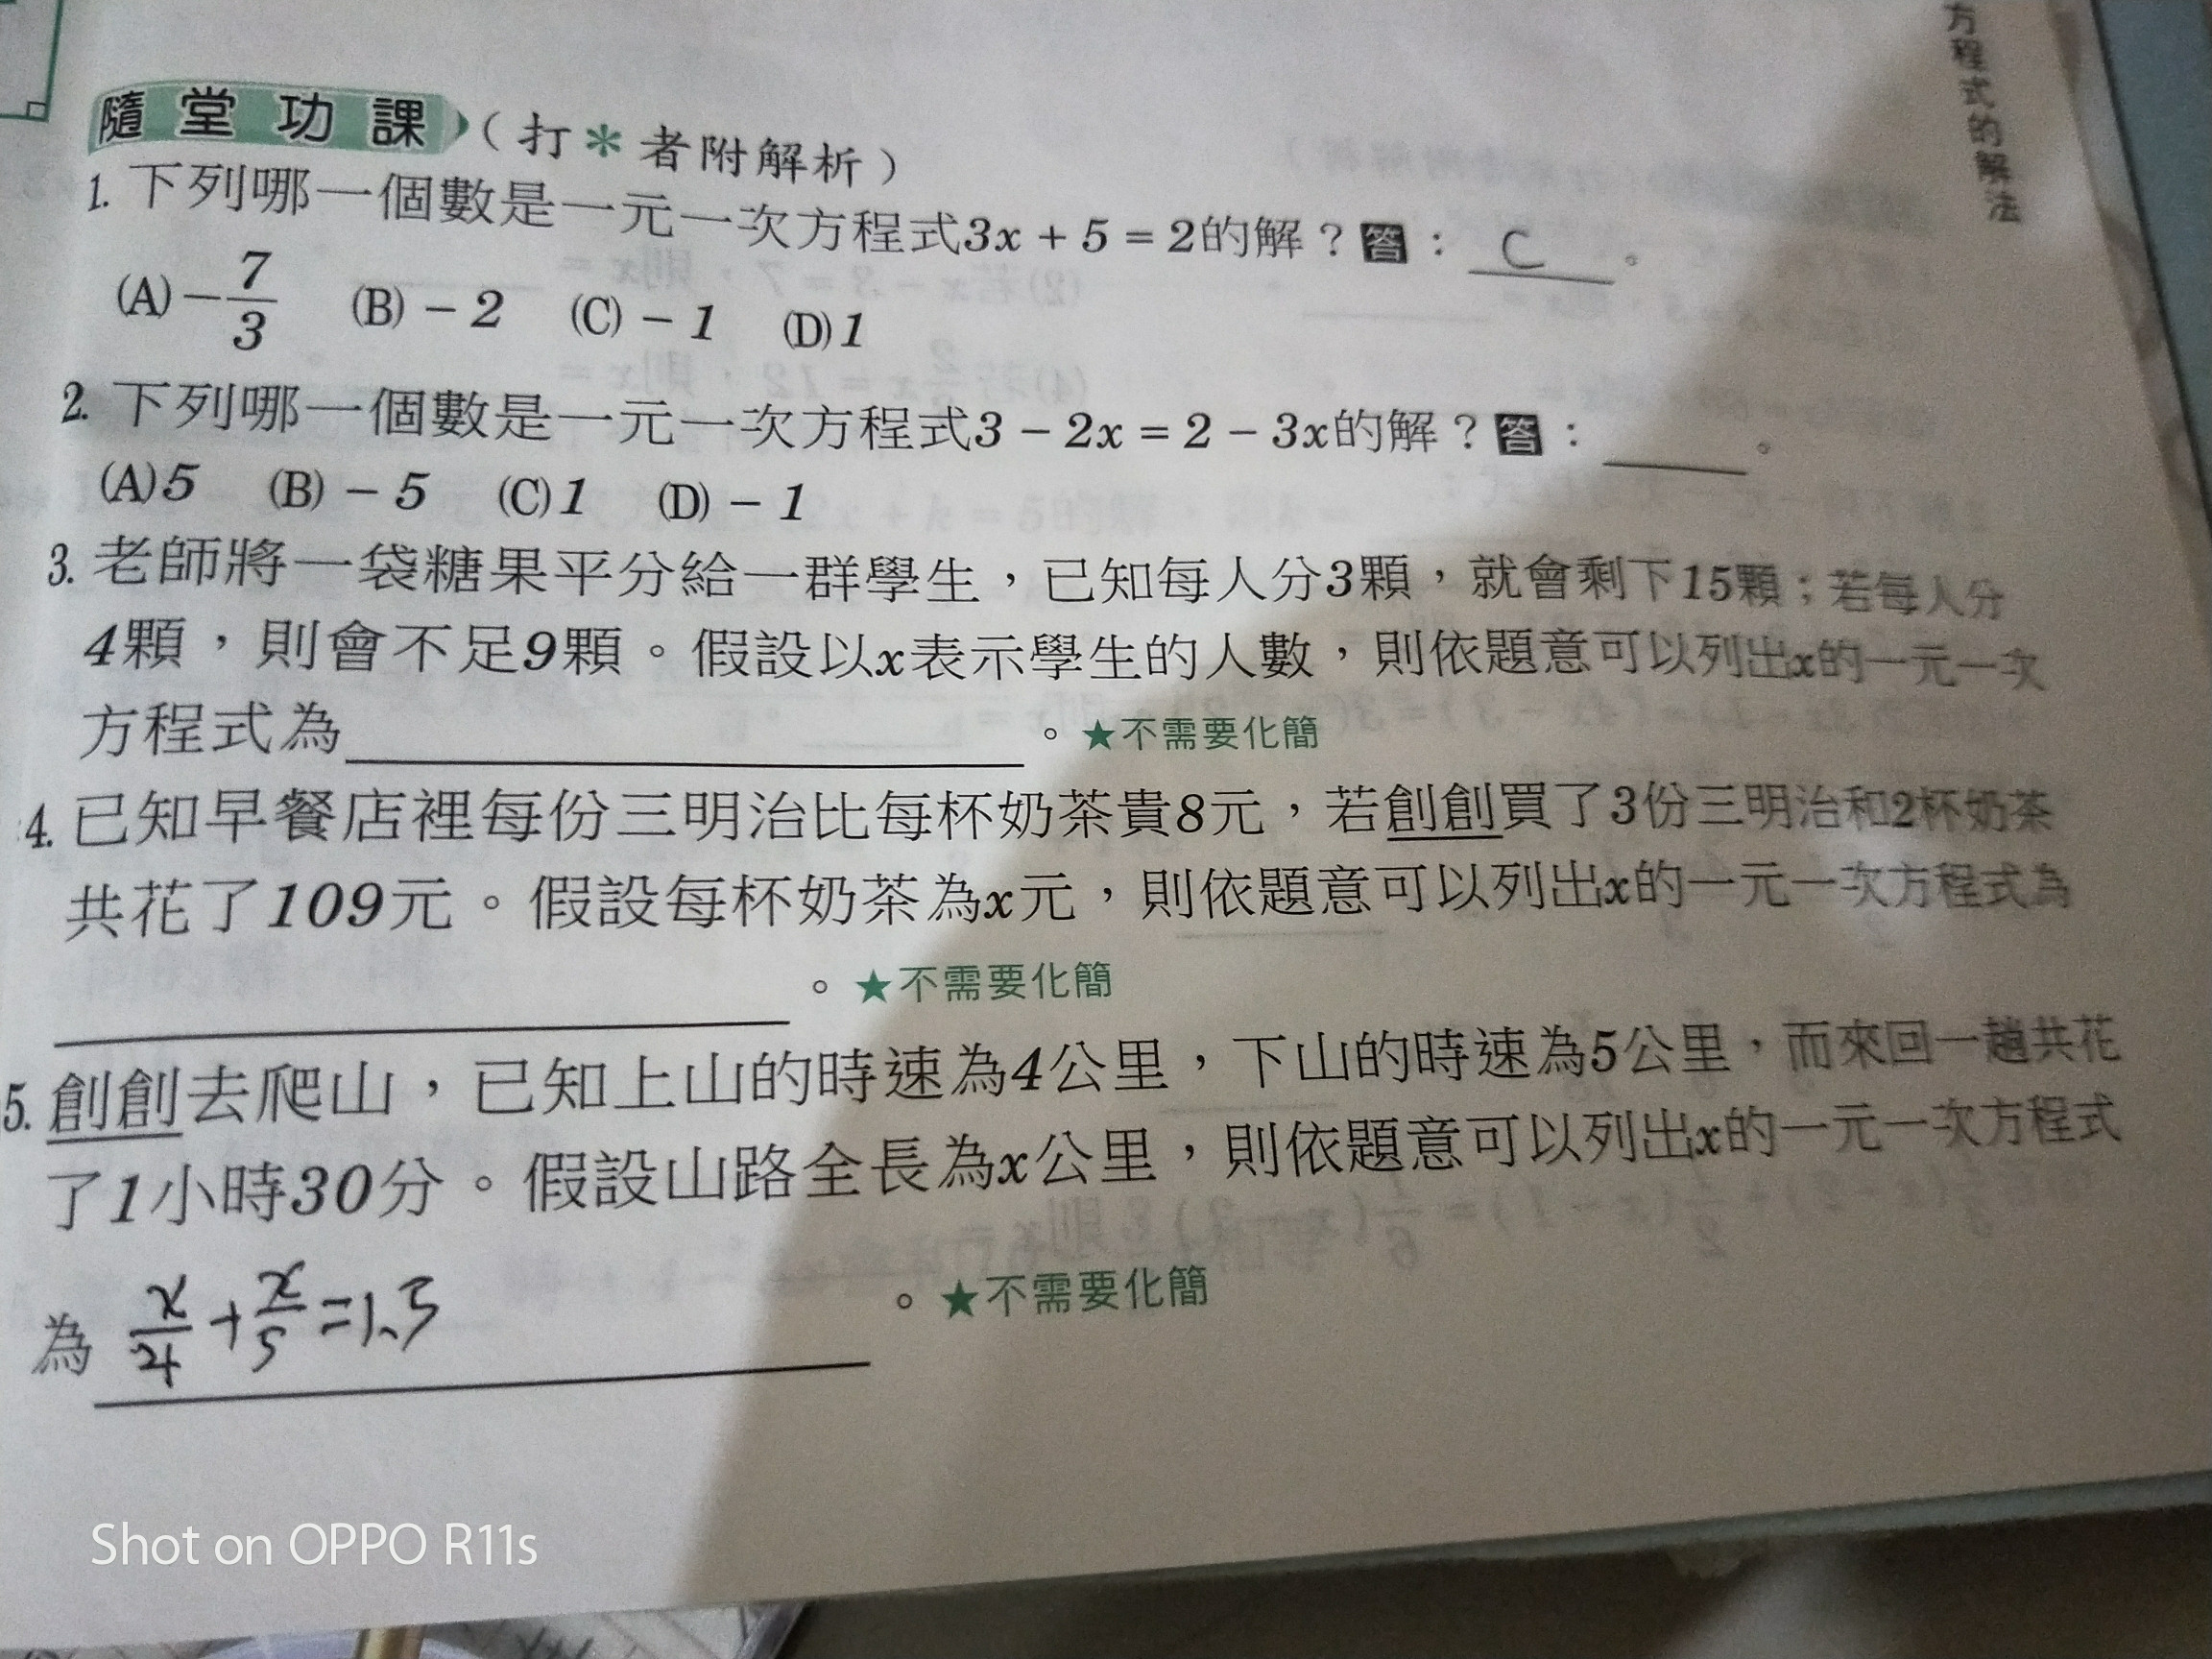 方程式的解法
隨堂功課（打＊者附解析）
1. 下列哪一個數是一元一次方程式3x + 5 = 2的解？答：C。
(A) −7/3 (B) − 2 (C) − 1 (D) 1
2. 下列哪一個數是一元一次方程式3 − 2x = 2 − 3x的解？答：＿＿。
(A) 5 (B) − 5 (C) 1 (D) − 1
3. 老師將一袋糖果平分給一群學生，已知每人分3顆，就會剩下15顆；若每人分
4顆，則會不足9顆。假設以x表示學生的人數，則依題意可以列出x的一元一次
方程式為＿＿＿＿。★不需要化簡
4. 已知早餐店裡每份三明治比每杯奶茶貴8元，若創創買了3份三明治和2杯奶茶
共花了109元。假設每杯奶茶為x元，則依題意可以列出x的一元一次方程式為
＿＿＿＿。★不需要化簡
5. 創創去爬山，已知上山的時速為4公里，下山的時速為5公里，而來回一趟共花
了1小時30分。假設山路全長為x公里，則依題意可以列出x的一元一次方程式
為 x/4 + x/5 = 1.5。★不需要化簡
Shot on OPPO R11s